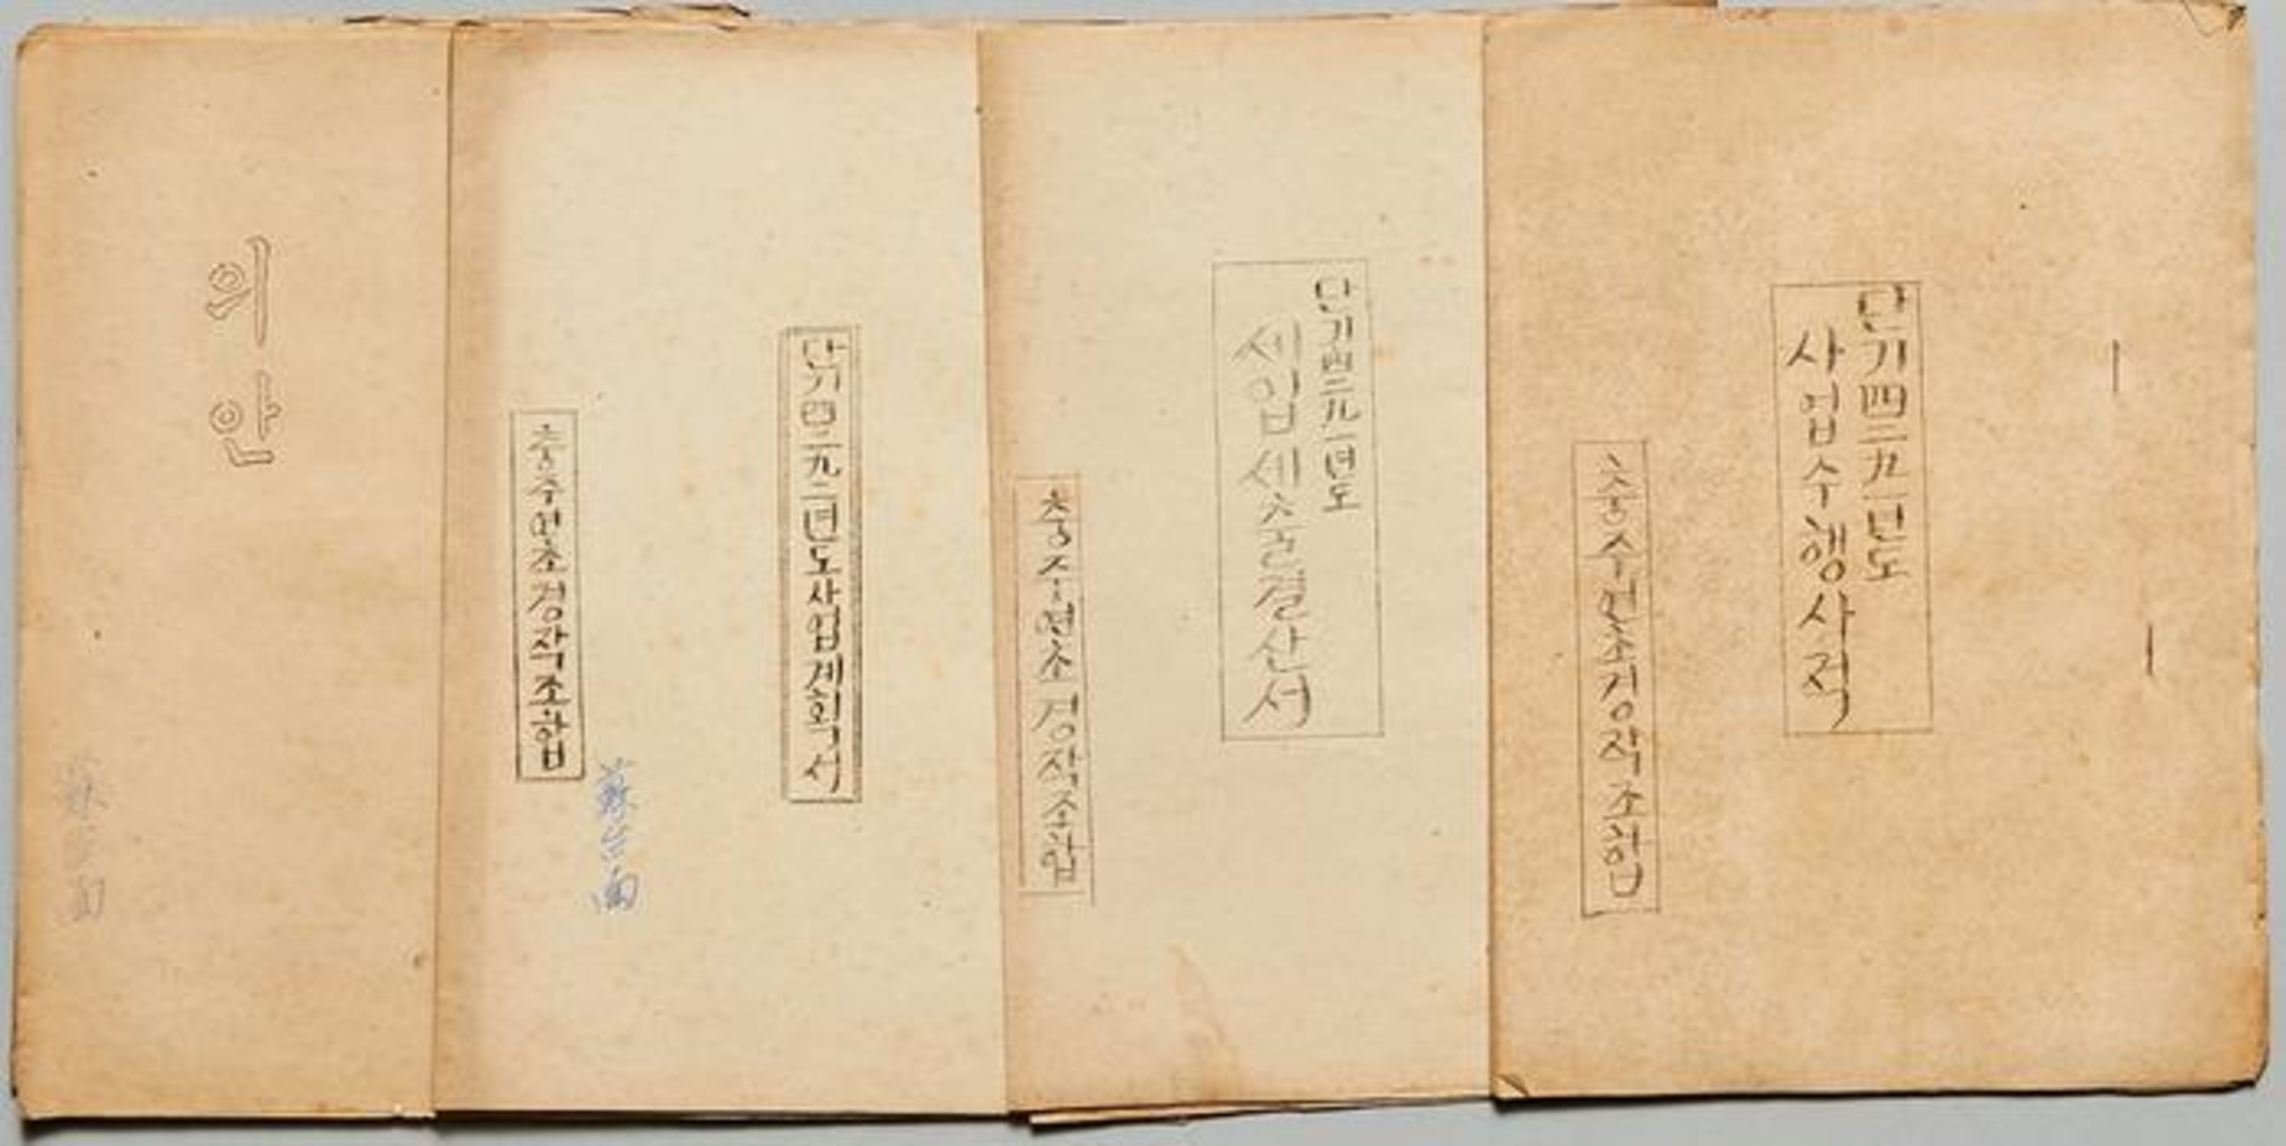 의안
蘇台面
단기四二九二년도사업계획서
蘇台面
충주연초경작조합
단기四二九一년도
세입세출결산서
충주연초경작조합
단기四二九一년도
사업수행사적
충주연초경작조합